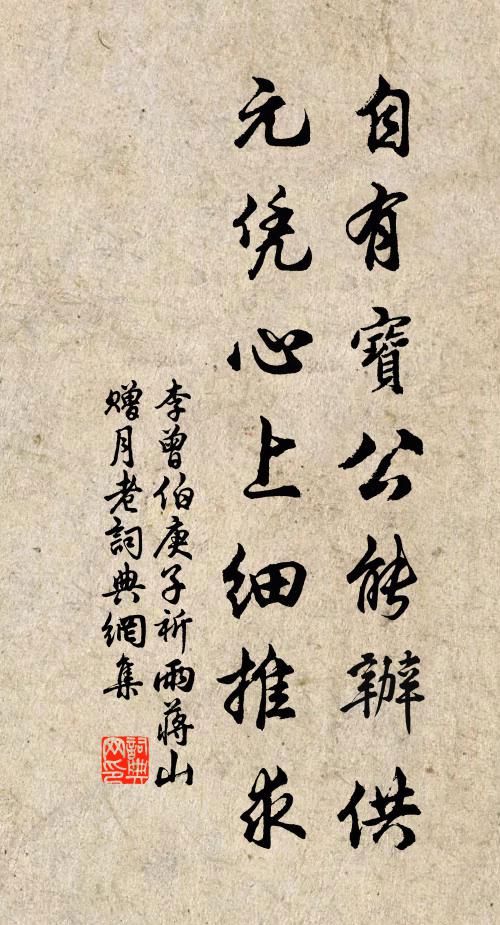 自有寶公能辦供
元凭心上細推求
李曾伯庚子祈雨蔣山
赠月老詞典網集
詞典
网印